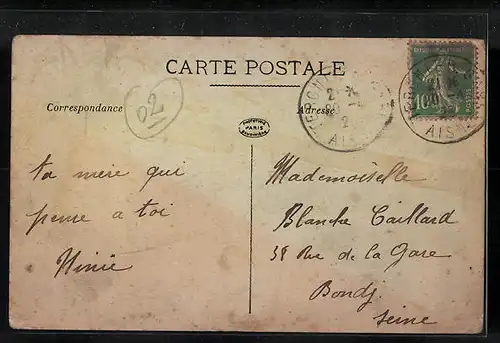 CARTE POSTALE
Correspondance
Adresse
02
PARIS
AISNE
10
POSTES
ta mère qui
pense a toi
Ninie
Mademoiselle
Blanche Caillard
38 Rue de la Gare
Bondy
Seine